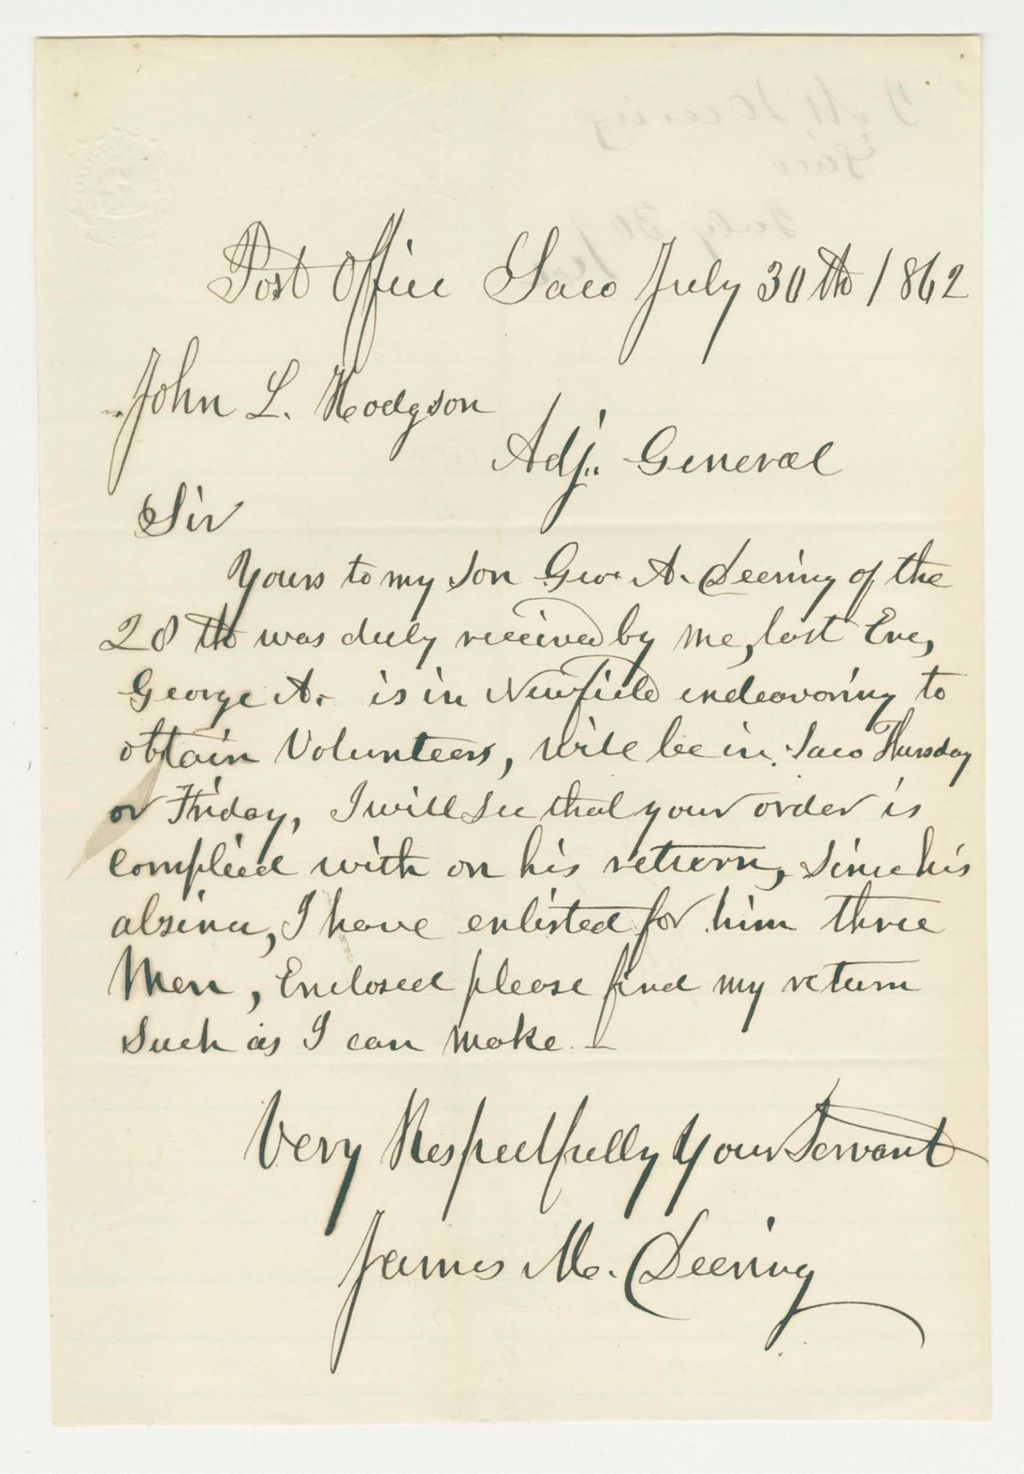 Post Office Saco July 30th 1862
John L. Hodgson
Adj. General
Sir
Yours to my Son Geo. A. Deering of the
28th was duly received by me, last Eve,
George A. is in Newfield endeavoring to
obtain Volunteers, will be in Saco Thursday
or Friday, I will see that your order is
complied with on his return, Since his
absence, I have enlisted for him three
Men, Enclosed please find my return
Such as I can make –
Very Respectfully Your Servant
James M. Deering